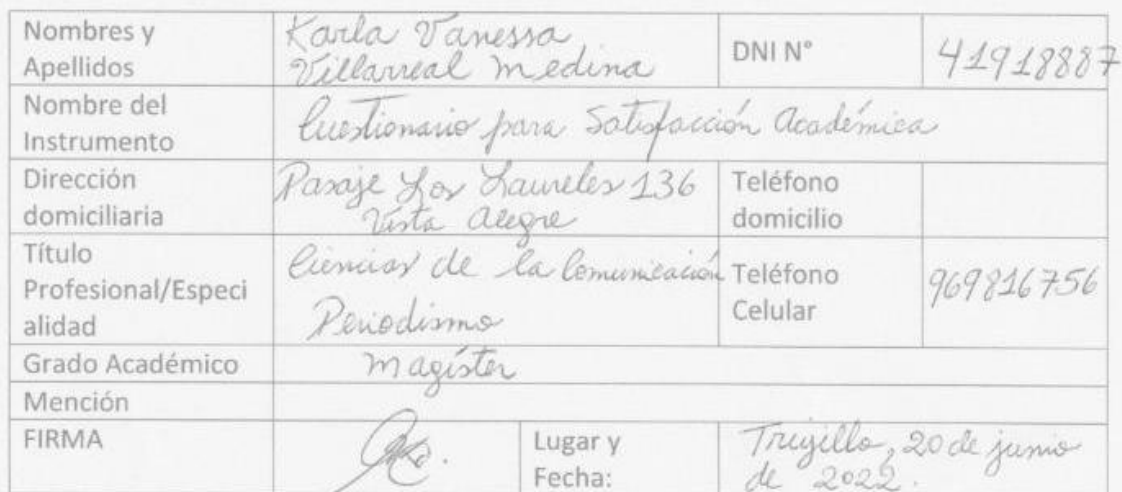 Nombres y Apellidos Karla Vanessa Villarreal Medina DNI N° 41918887
Nombre del Instrumento Cuestionario para Satisfacción Académica
Dirección domiciliaria Pasaje Los Laureles 136 Vista Alegre Teléfono domicilio
Título Profesional/Especialidad Ciencias de la Comunicación Periodismo Teléfono Celular 969816756
Grado Académico Magíster
Mención
FIRMA Lugar y Fecha: Trujillo, 20 de junio de 2022.